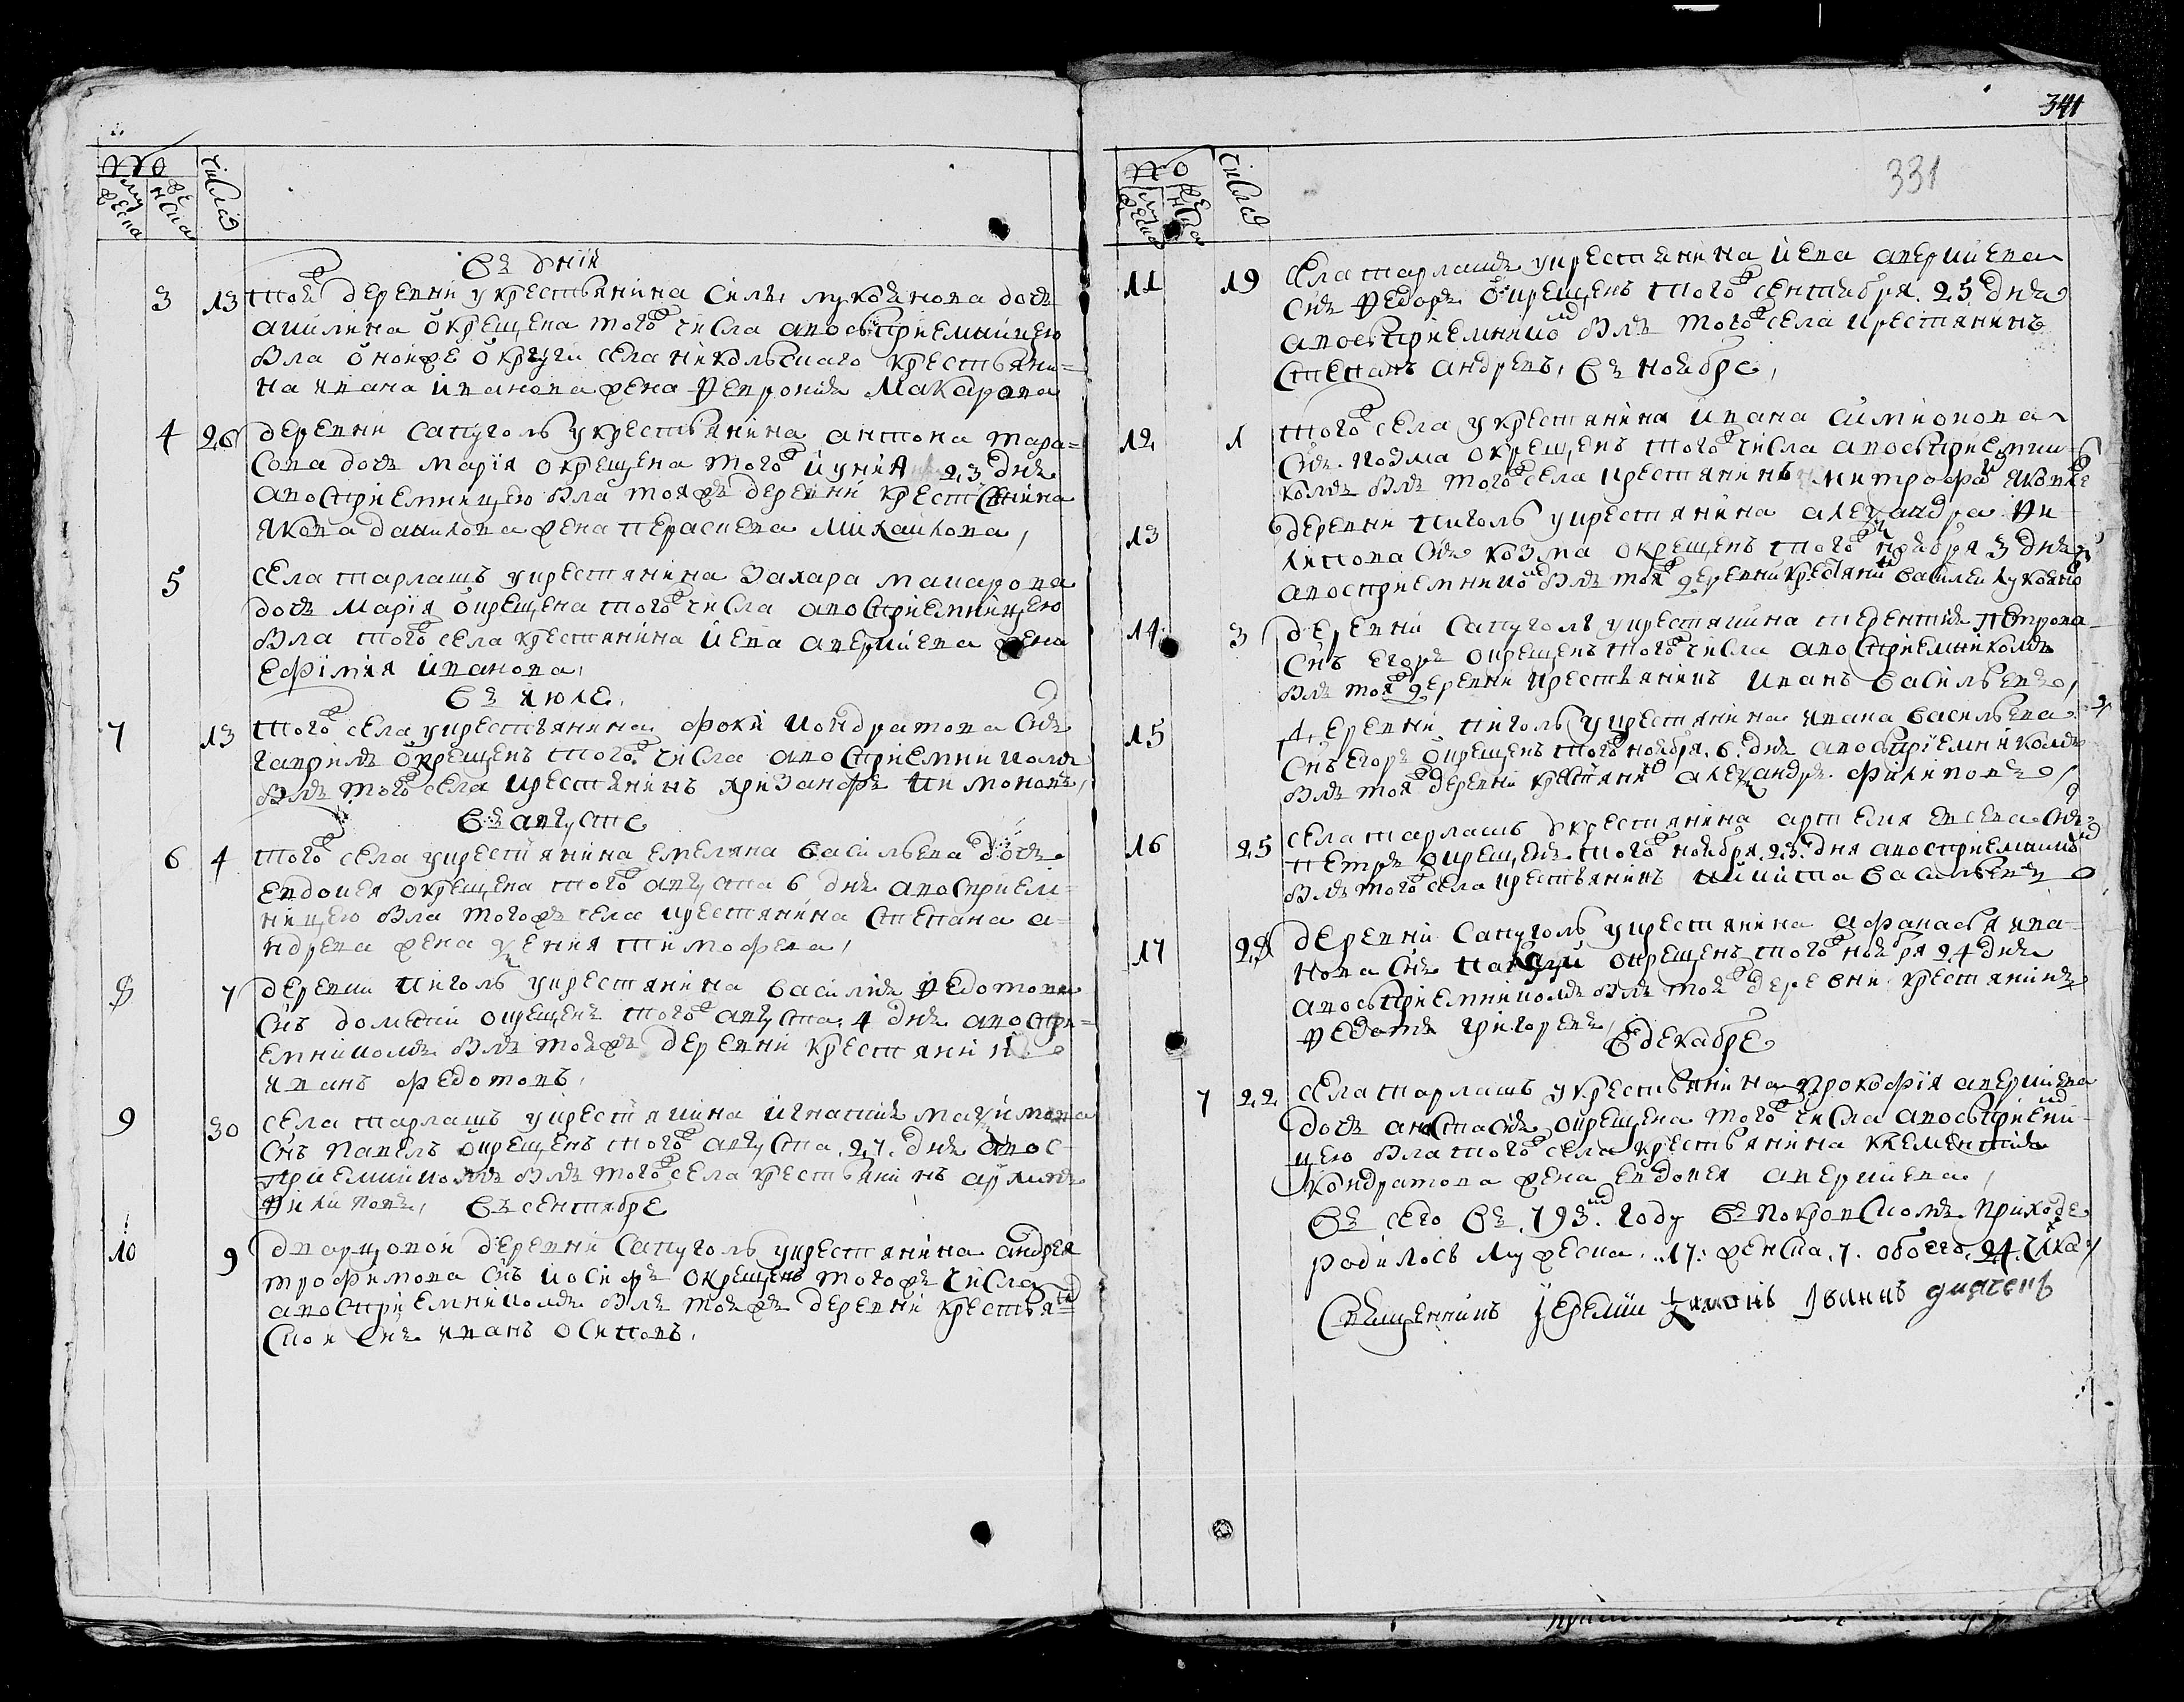 341
331
№ числа
мужеска женска
въ июнѣ
3 13 тоя деревни у крестьянина силы лукоянова дочь
акилина окрещена того числа а восприемницею
была оной же округи села никольскаго крестьяни=
на ивана иванова жена феврония макарова
4 26 деревни сапуголь у крестьянина антона тара=
сова дочь мария окрещена того июния 23 дня
а восприемницею была тояжъ деревни крестьянина
якова данилова жена параскева михаилова
5 села шарлашъ у крестьянина захара макарова
дочь мария окрещена того числа а восприемницею
была того села крестьянина иева аверкиева жена
ефимия иванова
въ июле
7 13 того села у крестьянина фоки кондратова сынъ
гаврилъ окрещенъ того числа а восприемникомъ
былъ того села крестьянинъ хризанфъ
въ августе
6 4 того села у крестьянина емеляна васильева дочь
евдокея окрещена того августа 6 дня а восприем=
ницею была того жъ села крестьянина степана а=
ндреева жена тимофеева
8 7 деревни пиголь у крестьянина василия федотова
снъ окрещенъ того августа 4 дня а воспри=
емникомъ былъ тояжъ деревни крестьянин
иванъ федотовъ
9 30 села шарлашъ у крестьянина игнатия максимова
снъ павелъ окрещенъ того августа 27 дня а вос=
приемникомъ былъ того села крестьянинъ
филиповъ въ сентябре
10 9 дварцовой деревни сапуголь у крестьянина андрея
трофимова снъ иосифъ окрещенъ того жъ числа
а восприемникомъ былъ тояжъ деревни крестья=
ской снъ иванъ осиповъ
№ числа
мужеска женска
11 19 села шарлашъ у крестьянина иева аверкиева
снъ федоръ окрещенъ того сентября 25 дня
а восприемником былъ того села крестьянинъ
степанъ андреевъ въ ноябре
12 1 того села у крестьянина ивана симионова
снъ козма окрещенъ того числа а восприемни
комъ былъ того села крестьянинъ митрофа яковле
13 деревни пиголь у крестьянина александра фи
липова снъ козма окрещенъ того ноября 3 дня
а восприемником былъ тоя деревни крестьяни василеи лукояно
14 3 деревни сапуголь у крестьянина терентия петрова
снъ егоръ окрещенъ того числа а восприемникомъ
былъ тоя деревни крестьянинъ иванъ васильевъ
15 деревни пиголь у крестьянина ивана васильева
снъ егоръ окрещенъ того ноября 6 дня а восприемникомъ
былъ тоя деревни крестьяни александръ филиповъ
16 25 села шарлашъ у крестьянина артемия евсева снъ
петръ окрещенъ того ноября 23 дня а восприемником
былъ того села крестьянинъ никита васильевъ
17 28 деревни сапуголь у крестьянина афанасья ива=
нова снъ окрещенъ того ноября 24 дня
а восприемникомъ былъ тоя деревни крестьянинъ
федотъ григоревъ въ декабре
7 22 села шарлашъ у крестьянина прокофия аверкиева
дочь анастасия окрещена того числа а восприемни=
цею была того села крестьянина клементия
кондратова жена евдокея аверкиева
въ сего въ 793 году въ покровскомъ приходе
родилось мужеска 17 женска 7 обоего 24 члка
священникъ иеремии иоаннъ